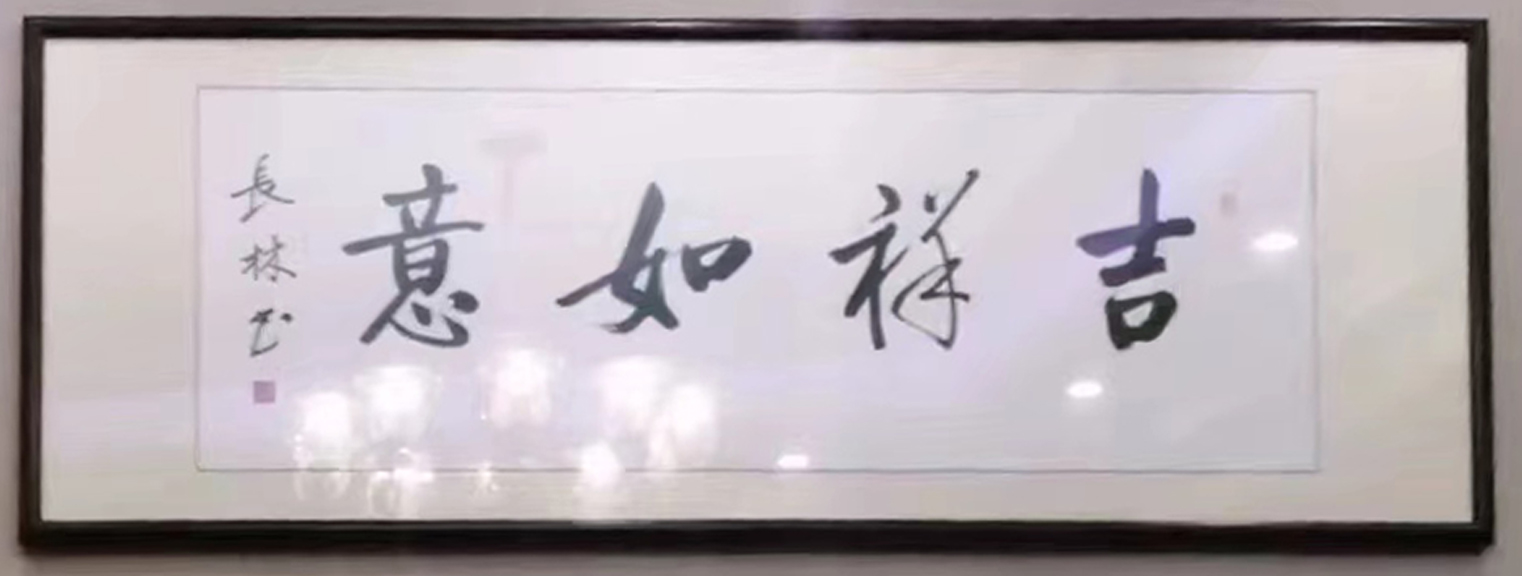 吉祥如意
長林书